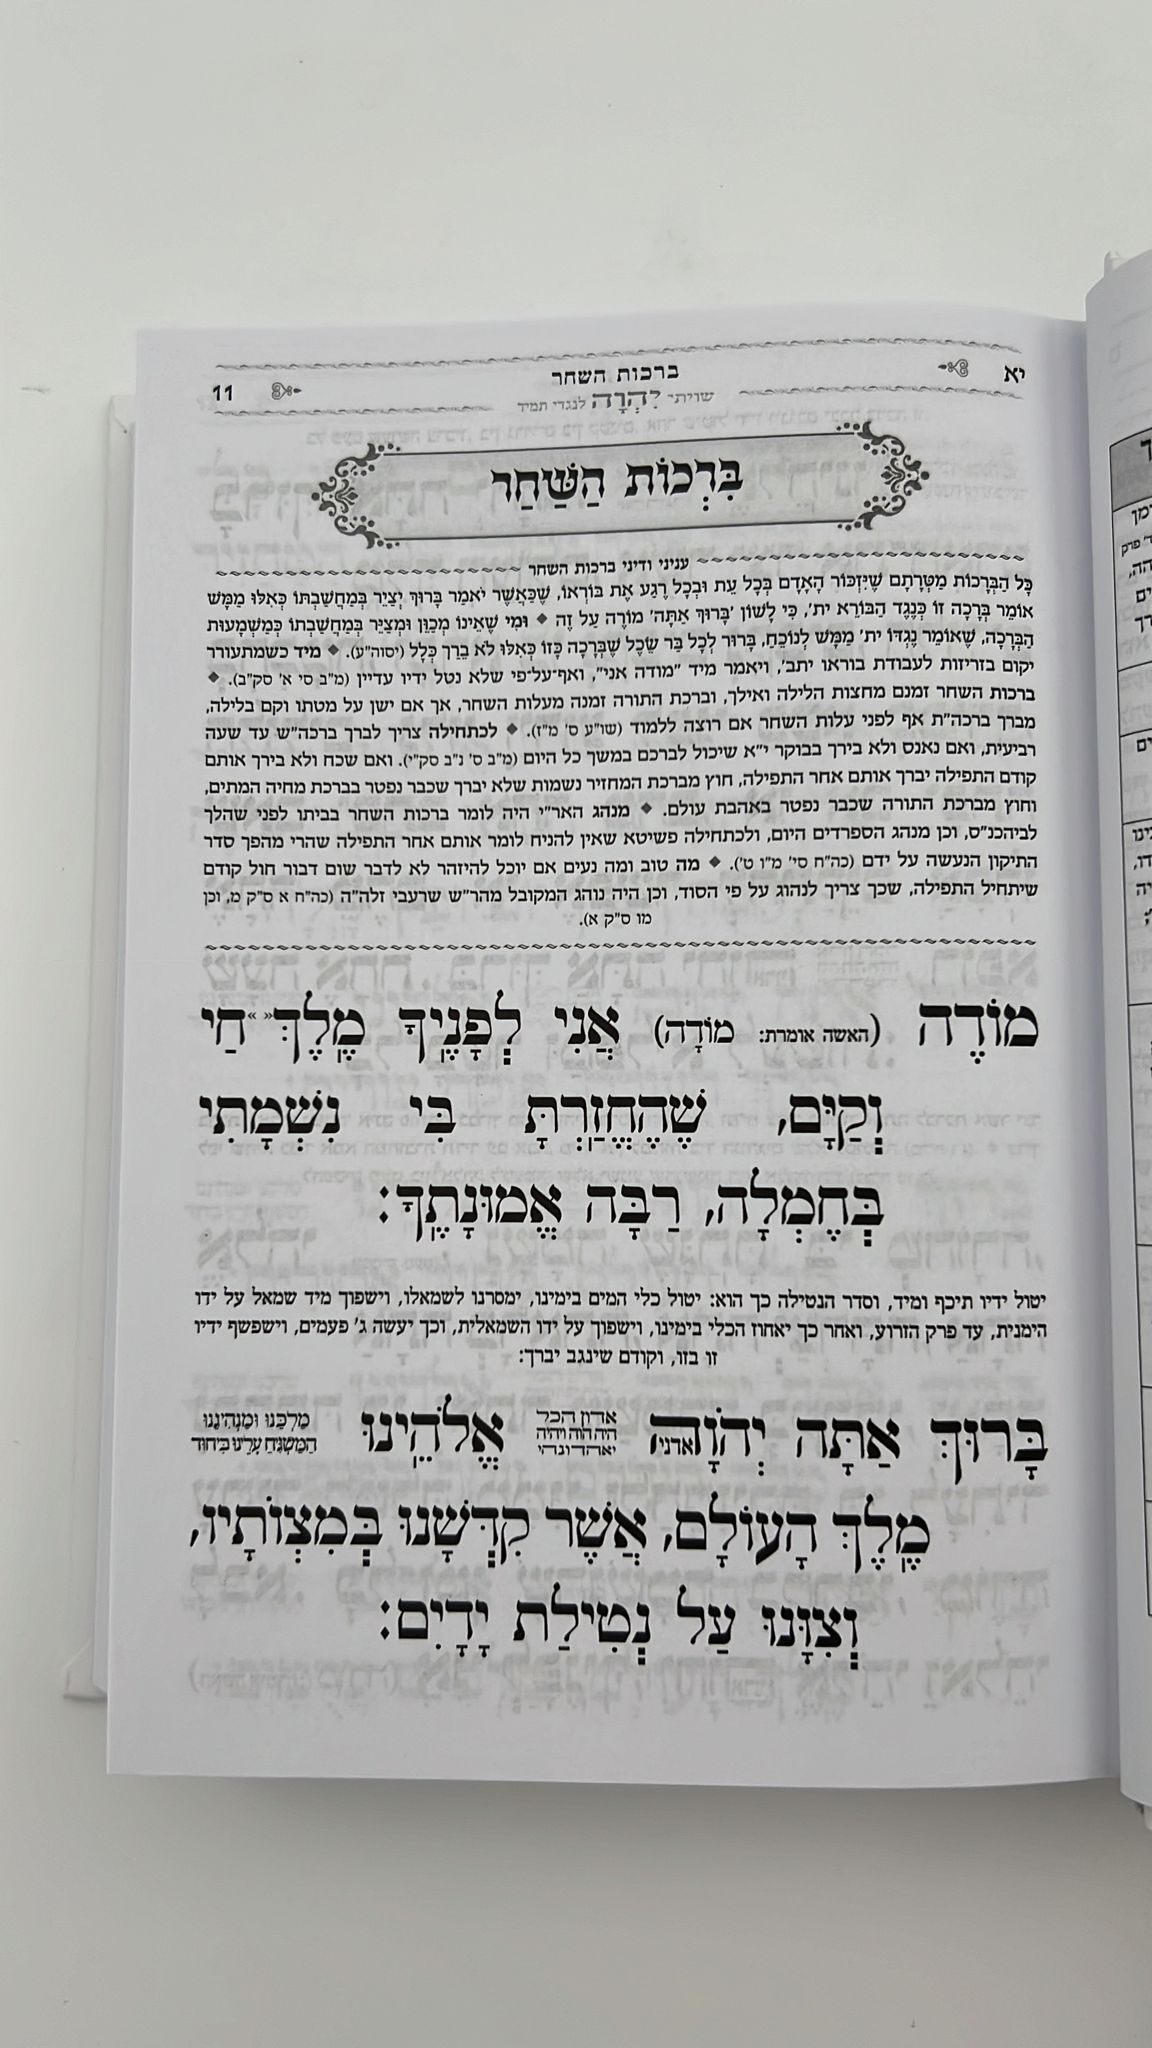 יא ברכות השחר 11
שויתי יְהֹוָה לנגדי תמיד
בִּרְכוֹת הַשַּׁחַר
עניני ודיני ברכות השחר
כָּל הַבְּרָכוֹת מַטְּרָתָם שֶׁיִּזְכּוֹר הָאָדָם בְּכָל עֵת וּבְכָל רֶגַע אֶת בּוֹרְאוֹ, שֶׁכַּאֲשֶׁר יֹאמַר בָּרוּךְ יְצַיֵּר בְּמַחֲשַׁבְתּוֹ כְּאִלּוּ מַמָּשׁ
אוֹמֵר בְּרָכָה זוֹ כְּנֶגֶד הַבּוֹרֵא ית', כִּי לְשׁוֹן 'בָּרוּךְ אַתָּה' מוֹרֶה עַל זֶה ◆ וּמִי שֶׁאֵינוֹ מְכַוֵּן וּמְצַיֵּר בְּמַחֲשַׁבְתּוֹ כְּמַשְׁמָעוּת
הַבְּרָכָה, שֶׁאוֹמֵר נֶגְדּוֹ ית' מַמָּשׁ לְנוֹכֵחַ, בָּרוּר לְכָל בַּר שֵׂכֶל שֶׁבְּרָכָה כָּזוֹ כְּאִלּוּ לֹא בֵּרֵךְ כְּלָל (יסוה"ע). ◆ מיד כשמתעורר
יקום בזריזות לעבודת בוראו יתב', ויאמר מיד "מודה אני", ואף-על-פי שלא נטל ידיו עדיין (מ"ב סי' א' סק"ב). ◆
ברכות השחר זמנם מחצות הלילה ואילך, וברכת התורה זמנה מעלות השחר, אך אם ישן על מטתו וקם בלילה,
מברך ברכה"ת אף לפני עלות השחר אם רוצה ללמוד (שו"ע ס' מ"ז). ◆ לכתחילה צריך לברך ברכה"ש עד שעה
רביעית, ואם נאנס ולא בירך בבוקר י"א שיכול לברכם במשך כל היום (מ"ב ס' נ"ב סק"י). ואם שכח ולא בירך אותם
קודם התפילה יברך אותם אחר התפילה, חוץ מברכת המחזיר נשמות שלא יברך שכבר נפטר בברכת מחיה המתים,
וחוץ מברכת התורה שכבר נפטר באהבת עולם. ◆ מנהג האר"י היה לומר ברכות השחר בביתו לפני שהלך
לביהכנ"ס, וכן מנהג הספרדים היום, ולכתחילה פשיטא שאין להניח לומר אותם אחר התפילה שהרי מהפך סדר
התיקון הנעשה על ידם (כה"ח סי' מ"ו ט'). ◆ מה טוב ומה נעים אם יוכל להיזהר לא לדבר שום דבור חול קודם
שיתחיל התפילה, שכך צריך לנהוג על פי הסוד, וכן היה נוהג המקובל מהר"ש שרעבי זלה"ה (כה"ח א ס"ק מ, וכן
מו ס"ק א).
מוֹדֶה (האשה אומרת: מוֹדָה) אֲנִי לְפָנֶיךָ מֶלֶךְ « » חַי
וְקַיָּם, שֶׁהֶחֱזַרְתָּ בִּי נִשְׁמָתִי
בְּחֶמְלָה, רַבָּה אֱמוּנָתֶךָ:
יטול ידיו תיכף ומיד, וסדר הנטילה כך הוא: יטול כלי המים בימינו, ימסרנו לשמאלו, וישפוך מיד שמאל על ידו
הימנית, עד פרק הזרוע, ואחר כך יאחוז הכלי בימינו, וישפוך על ידו השמאלית, וכך יעשה ג' פעמים, וישפשף ידיו
זו בזו, וקודם שינגב יברך:
בָּרוּךְ אַתָּה יְהֹוָה אדני אדון הכל היה הוה ויהיה יאהדונהי אֱלֹהֵינוּ מַלְכֵּנוּ וּמַנְהִיגֵנוּ הַמַּשְׁגִּיחַ עָלֵינוּ בְּיִחוּד
מֶלֶךְ הָעוֹלָם, אֲשֶׁר קִדְּשָׁנוּ בְּמִצְוֹתָיו,
וְצִוָּנוּ עַל נְטִילַת יָדָיִם: